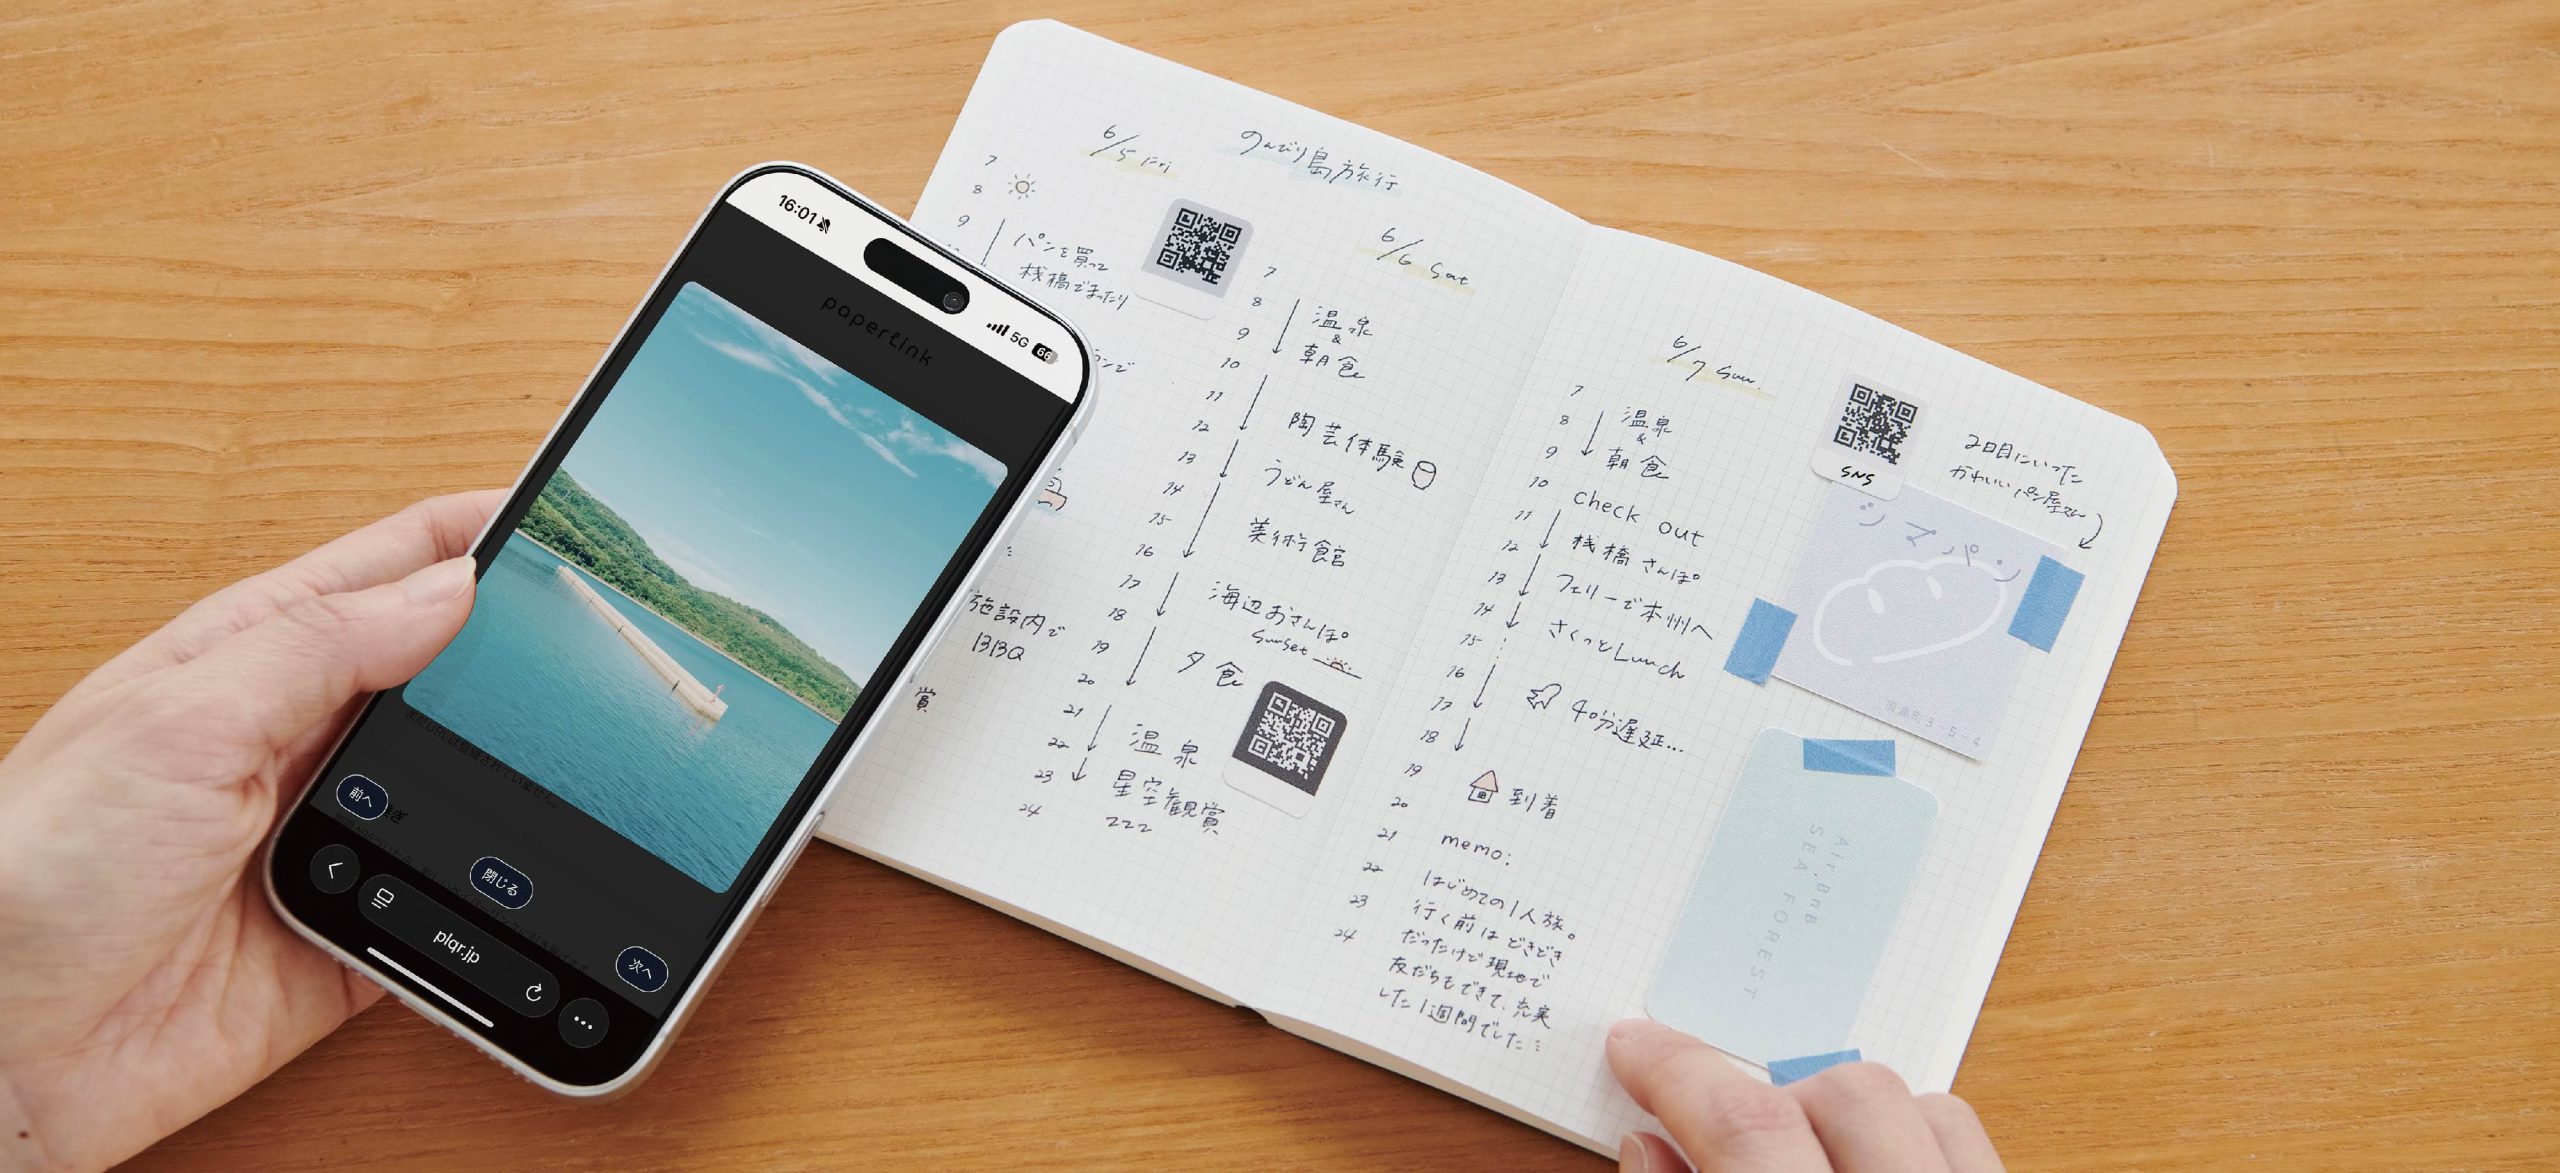 16:01
5G
66
paperlink
まだURLは登録されていません。
前へ
閉じる
次へ
plqr.jp
のんびり島旅行
6/5 Fri
7
8
9
パンを買って
桟橋でまったり
施設内で
BBQ
賞
6/6 Sat
7
8
9
10
11
12
13
14
15
16
17
18
19
20
21
22
23
24
温泉
&
朝食
陶芸体験
うどん屋さん
美術館
海辺おさんぽ
Sunset
夕食
温泉
星空観賞
zzz
6/7 Sun.
7
8
9
10
11
12
13
14
15
16
17
18
19
20
21
22
23
24
温泉
&
朝食
check out
桟橋さんぽ
フェリーで本州へ
さくっとLunch
40分遅延...
到着
memo:
はじめての1人旅。
行く前はどきどき
だったけど現地で
友だちもできて、充実
した1週間でした
SNS
2日目にいった
かわいいパン屋さん
シマパン
3-5-4
Air.BnB
SEA FOREST